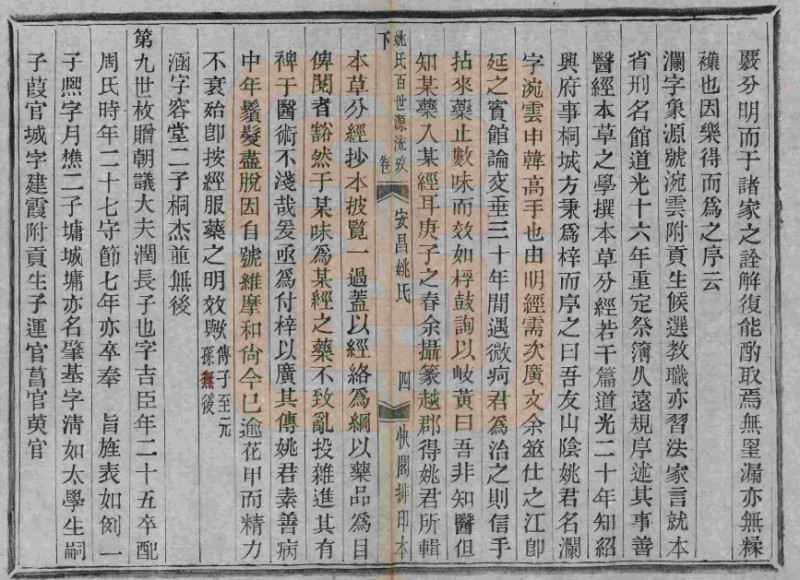 覈分明而于諸家之詮解復能酌取焉無罣漏亦無糅
襍也因樂得而爲之序云
瀾字象源號涴雲附貢生候選教職亦習法家言就本
省刑名館道光十六年重定祭簿以遠規序述其事善
醫經本草之學撰本草分經若干篇道光二十年知紹
興府事桐城方秉爲梓而序之曰吾友山陰姚君名瀾
字涴雲申韓高手也由明經需次廣文余筮仕之江卽
延之賓館論交垂三十年間遇微疴君爲治之則信手
拈來藥止數味而效如桴鼓詢以岐黃曰吾非知醫但
知某藥入某經耳庚子之春余攝篆越郡得姚君所輯
姚氏百世源流攷
卷下
安昌姚氏
四
快閣排印本
本草分經抄本披覽一過蓋以經絡爲綱以藥品爲目
俾閱者豁然于某味爲某經之藥不致亂投雜進其有
裨于醫術不淺哉爰亟爲付梓以廣其傳姚君素善病
中年鬚髮盡脫因自號維摩和尙今已逾花甲而精力
不衰殆卽按經服藥之明效歟傳子至元孫無後
涵字容堂二子桐杰並無後
第九世枚贈朝議大夫潤長子也字吉臣年二十五卒配
周氏時年二十七守節七年亦卒奉 旨旌表如例一
子熙字月樵二子墉城墉亦名肇基字淸如太學生嗣
子葭官城字建霞附貢生子運官菖官萸官